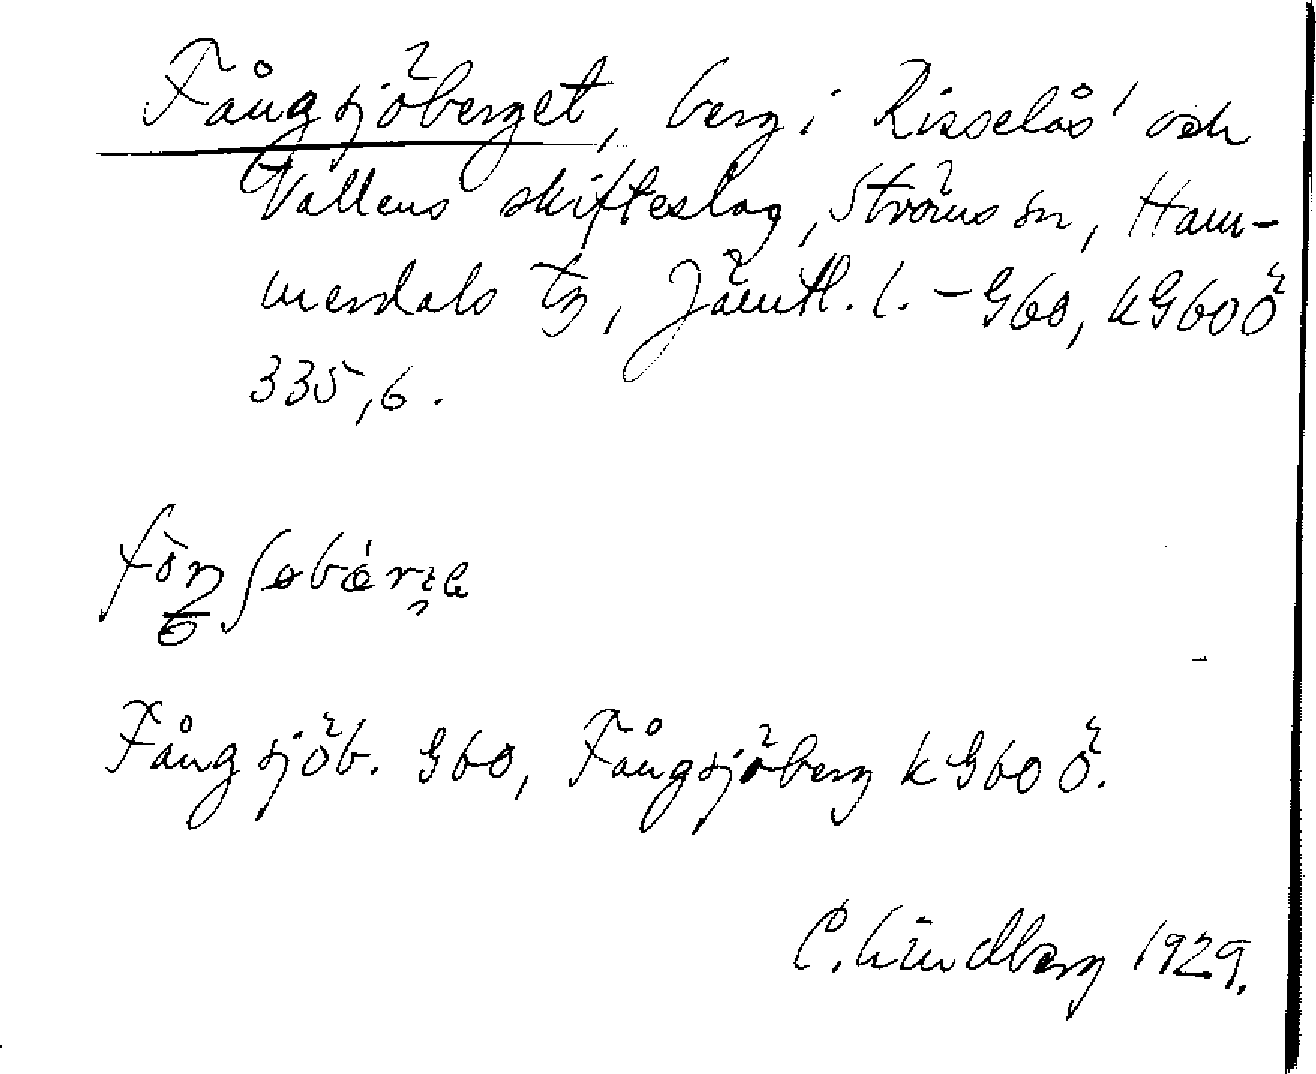 Fångsjöberget, berg i Risselås' och
Vallens skifteslag, Ströms sn, Ham-
merdals tg, Jämtl. l. – Gbo, kGboÖ
335,6.
Fångsjöb. Gbo, Fångsjöberg kGboÖ.
C. Lindberg 1929.